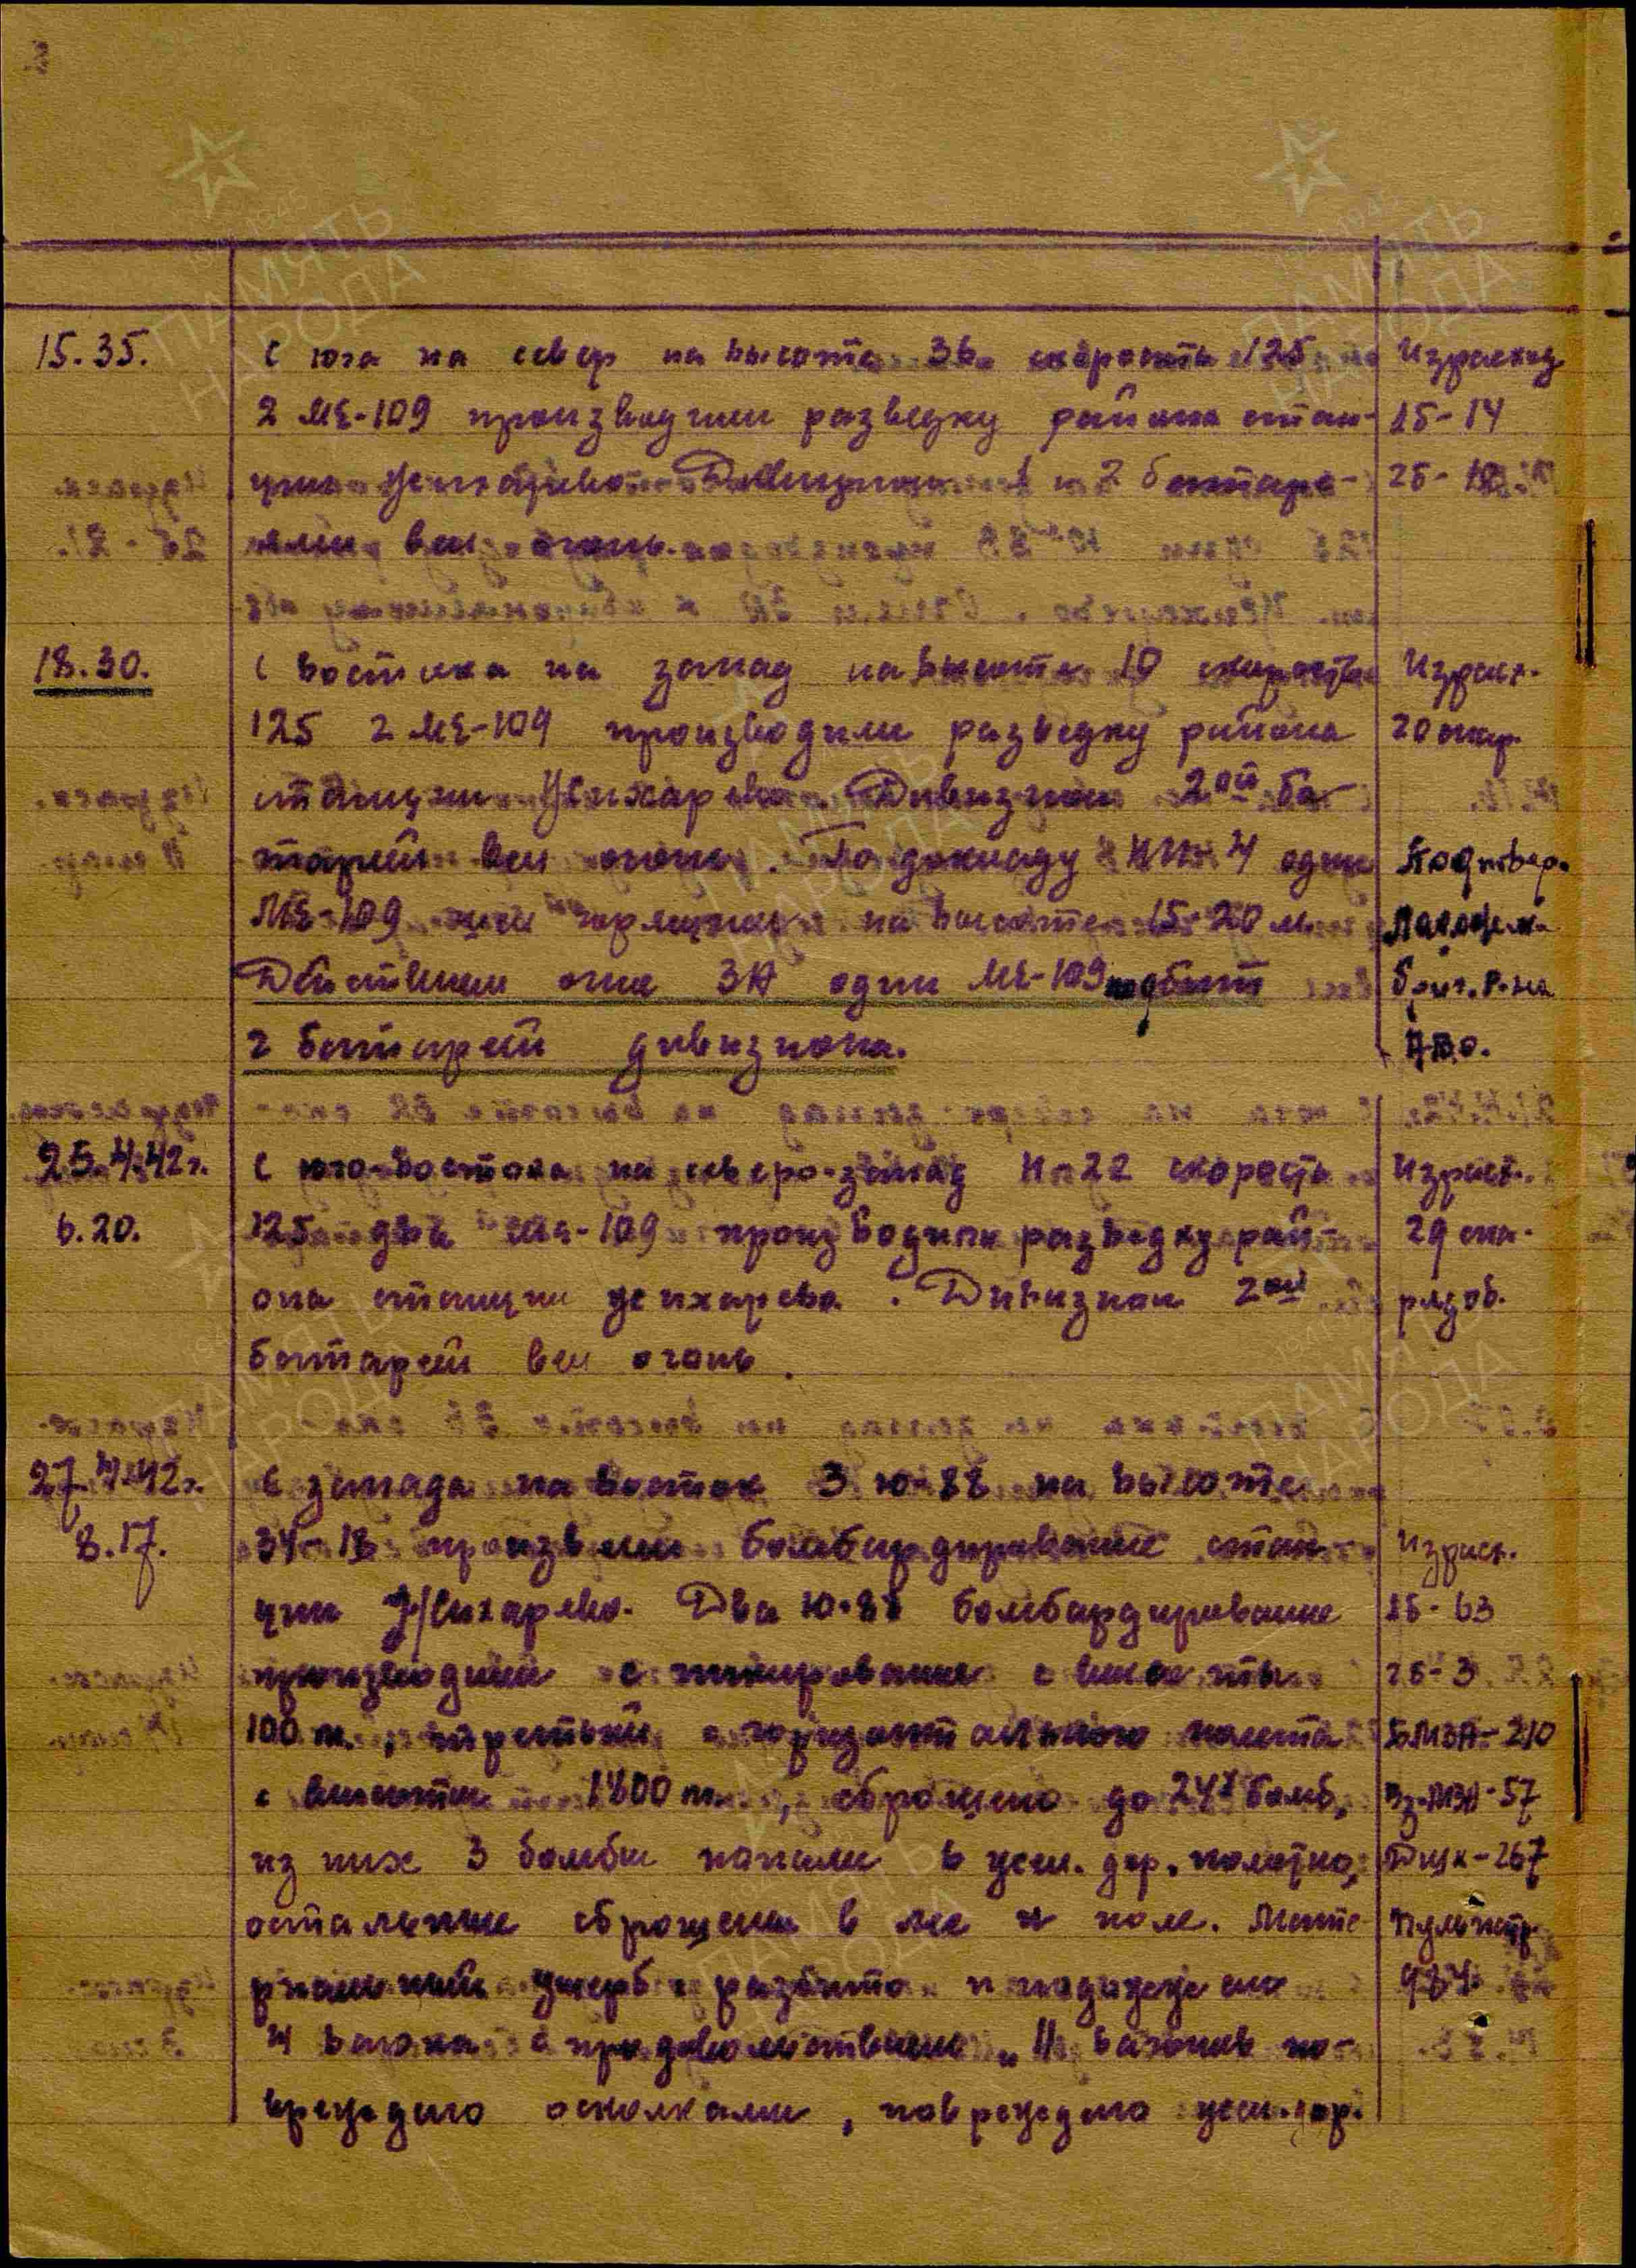 15.35. С юга на север на высоте 36 скорость 125 Израсход.
2 МЕ-109 производили разведку района стан- 15-14
ции Жихарево. Дивизион 1 и 2 батаре- 25-10.
ями вел огонь.
18.30. С востока на запад на высоте 10 скорость Израсх.
125 2 МЕ-109 производили разведку района 20 снар.
станции Жихарево. Дивизион 2ой ба-
тареей вел огонь. По докладу НП-4 один Подтвер.
МЕ-109 на высоте 15-20 м.
огня ЗА один МЕ-109 подбит бриг. р-на
2 батареей дивизиона. ПВО.
25.4.42г. С юго-востока на северо-запад Н-22 скорость Израсх.
6.20. 125 два Ме-109 производили разведку рай- 29 сна-
она станции Жихарево. Дивизион 2ой рядов.
батареей вел огонь.
27.4.42г. С запада на восток 3 Ю-88 на высоте
8.17. 34-18 произвели бомбардирование стан- Израсх.
ции Жихарево. Два Ю-88 бомбардирование 15-63
производили с пикирования с высоты 25-3
100 м., третий с горизонтального полета БМЗА-210
с высоты 1800 м., сброшено до 24х бомб, -57
из них 3 бомбы попали в жел. дор. полотно, -267
остальные сброшены в лес и поле. Мате-
риальный ущерб: разбито и подожжено 984
4 вагона с продовольствием, 11 вагонов по-
вреждено осколками, повреждено жел. дор.
ПАМЯТЬ
НАРОДА